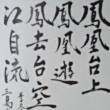 鳳凰台上
鳳凰遊
鳳去台空
江自流